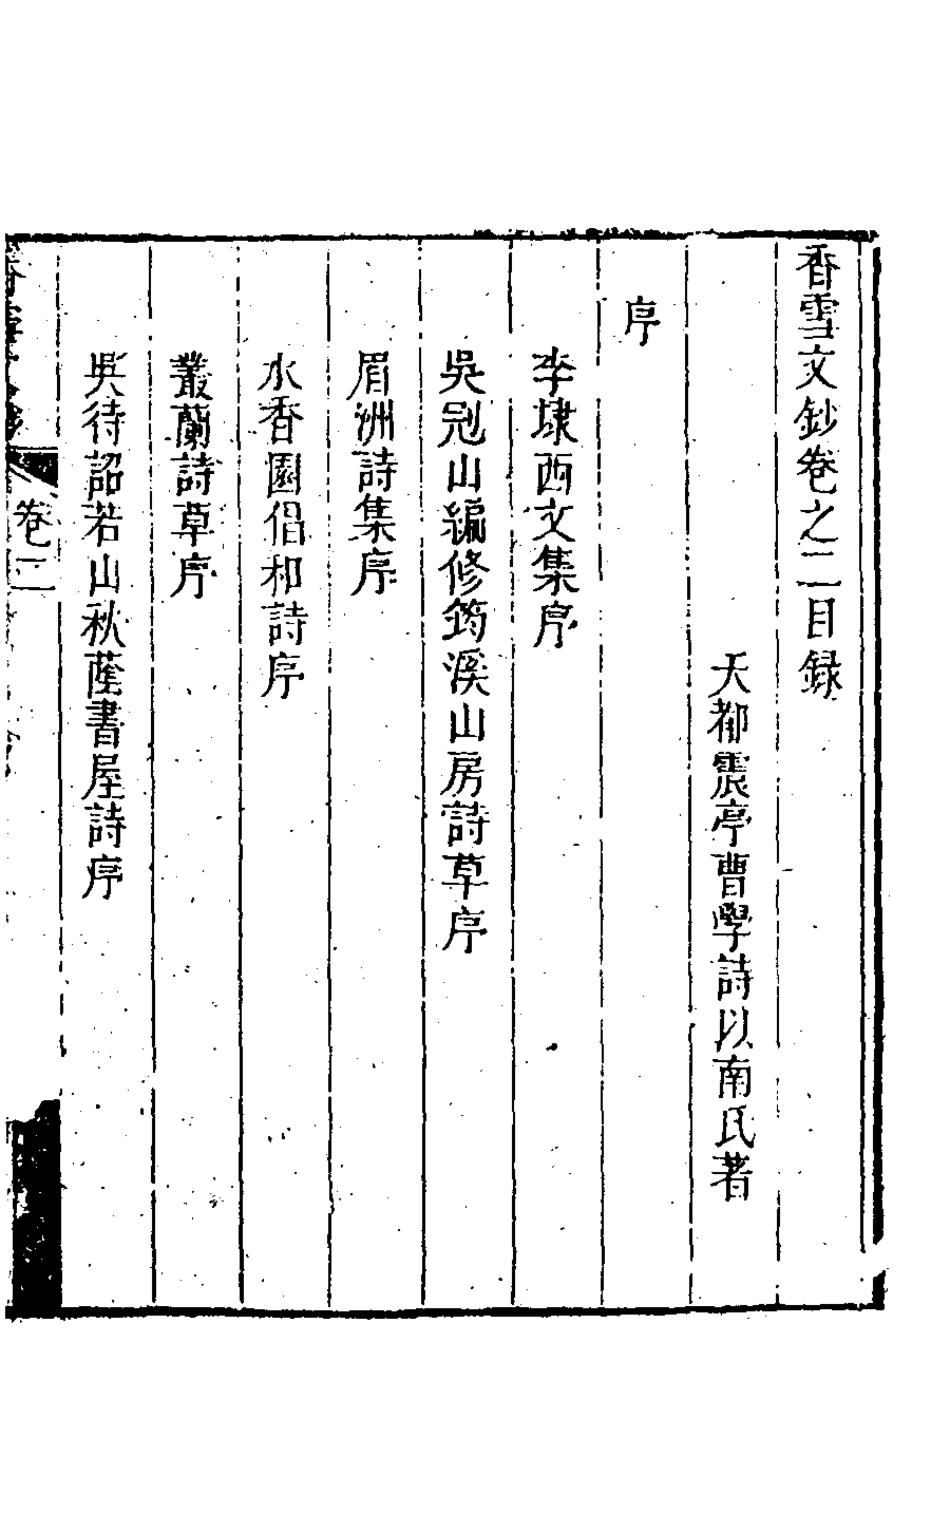 香雪文鈔卷之二目録
天都震亭曹學詩以南氏著
序
李埭西文集序
吳冠山編修筠溪山房詩草序
眉洲詩集序
水香園倡和詩序
叢蘭詩草序
吳待詔若山秋蔭書屋詩序
卷二